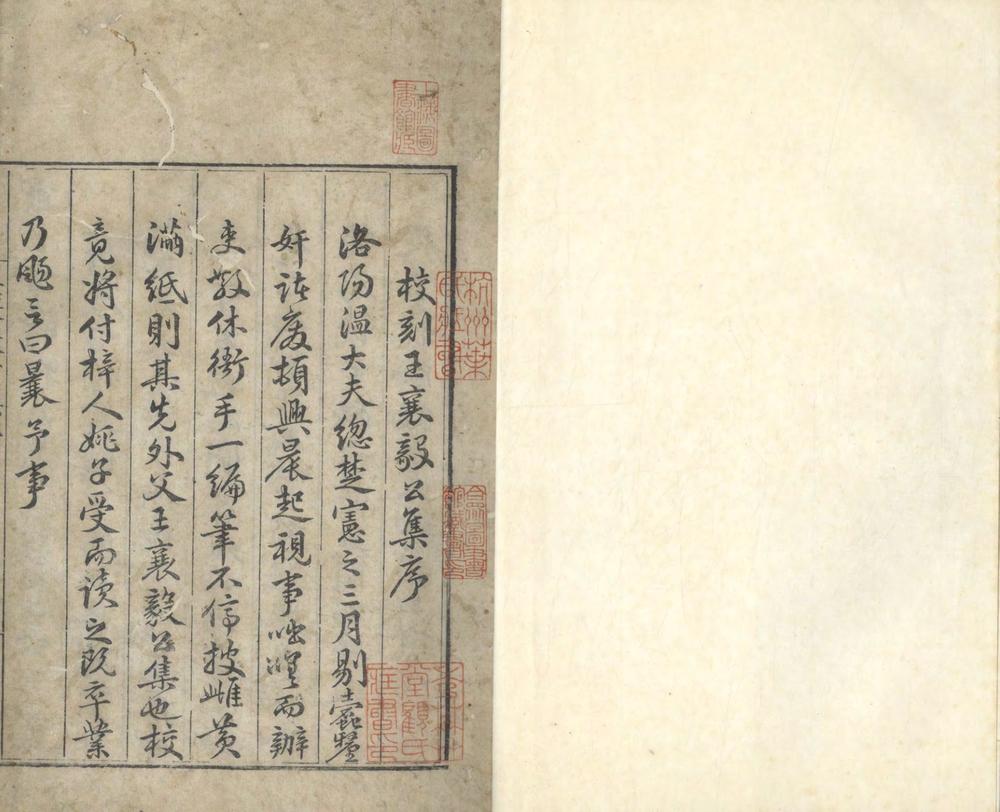 校刻王襄毅公集序
洛陽温大夫總楚憲之三月剔蠹釐
奸詿廢頓興晨起視事咄嗟而辦
吏散休衙手一編筆不停披雌黃
滿紙則其先外父王襄毅公集也校
竟將付梓人姚子受而讀之既卒業
乃颺言曰曩予事